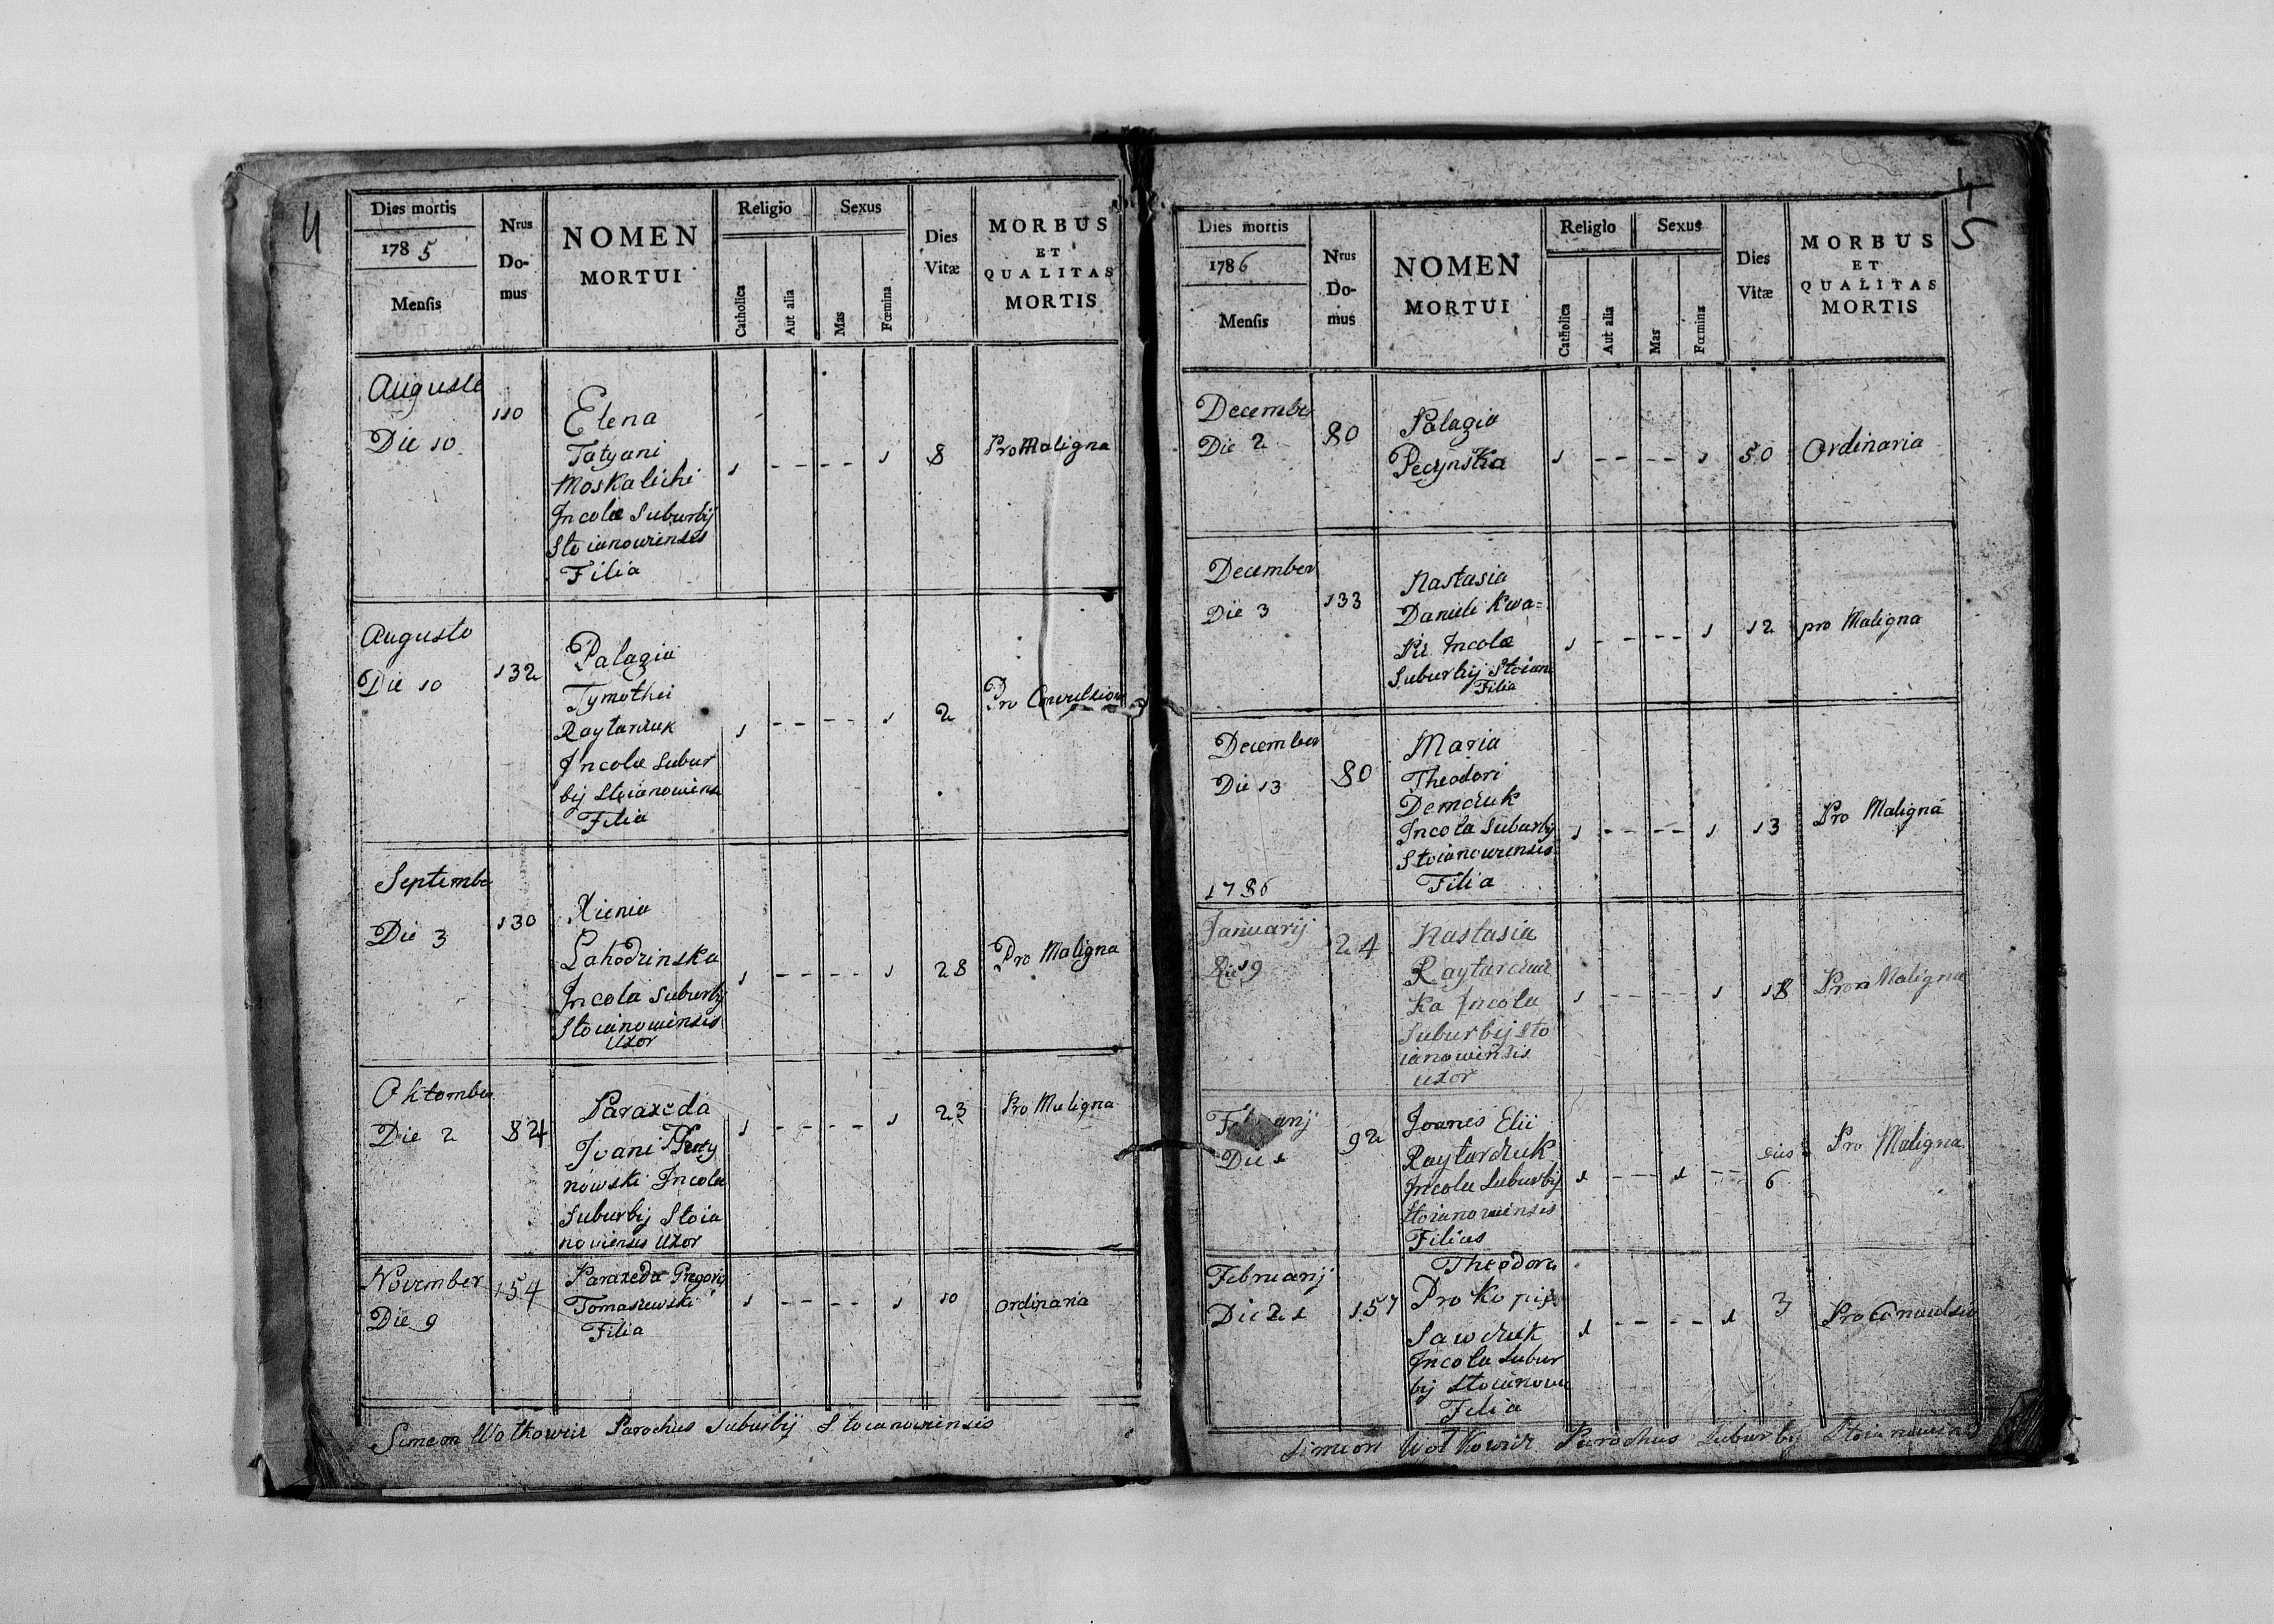 4
Dies mortis
1785
Mensis
Nrus
Do-
mus
NOMEN
MORTUI
Religio
Catholica
Aut alia
Sexus
Mas
Fœmina
Dies
Vitæ
MORBUS
ET
QUALITAS
MORTIS
Auguste
Die 10
110
Elena
Tatyani
Moskalichi
Incolæ Suburbij
Stoianowiensis
Filia
1 - - - - 1
8
Pro Maligna
Augusto
Die 10
132
Palagia
Tymothei
Raytarczuk
Incolæ Subur
bij Stoianowiens
Filia
1 - - - - 1
2
Pro Convulsione
Septembe
Die 3
130
Xienia
Lahodzinska
Incola Suburbij
Stoianowiensis
Uxor
1 - - - - 1
28
Pro Maligna
Oktomber
Die 2
84
Paraxeda
Ivani
nowski Incola
Suburbij Stoia
noviensis Uxor
1 - - - - 1
23
Pro Maligna
November
Die 9
154
Paraxeda Gregorij
Tomaszewski
Filia
1 - - - - 1
10
ordinaria
Simeon Wolkowicz Parochus Suburbij Stoianowiensis
4
5
Dies mortis
1786
Mensis
Nrus
Do-
mus
NOMEN
MORTUI
Religio
Catholica
Aut alia
Sexus
Mas
Fœmina
Dies
Vitæ
MORBUS
ET
QUALITAS
MORTIS
December
Die 2
80
Palagia
Pecynska
1 - - - - 1
50
Ordinaria
December
Die 3
133
Nastasia
Danieli Kwa=
Incolæ
Suburbij Stoian
Filia
1 - - - - 1
12
pro Maligna
December
Die 13
80
Maria
Theodori
Demczuk
Incola Suburbij
Stoianowiensis
Filia
1 - - - - 1
13
Pro Maligna
1786
Januarij
Die 19
24
Nastasia
Raytarczuc
Ka Incola
Suburbij Sto
ianowiensis
Uxor
1 - - - - 1
18
Pro Maligna
Februarij
Die 1
92
Joanes Elii
Raytarczuk
Incola Suburbij
Stoianowiensis
Filius
1 - - 1 - -
dies
6
Pro Maligna
Februarij
Die 21
157
Theodora
Prokopij
Sawczuk
Incola Subur
bij Stoianowi
Filia
1 - - - - 1
3
Pro Conwulsio
Simeon Wolkowicz Parochus Suburbij Stoianowiensis